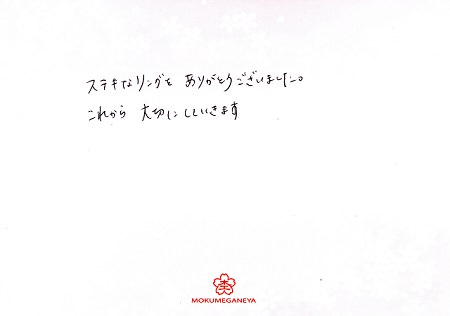 ステキなリングを ありがとうございました。
これから 大切にしていきます
MOKUMEGANEYA